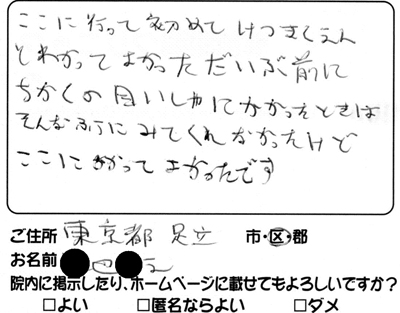 ここに行って初めてけつまくえん
とわかってよかっただいぶ前に
ちかくの目いしゃにかかったときは
そんなふうにみてくれなかったけど
ここにかかってよかったです
ご住所 東京都 足立 市・区・郡
お名前
院内に掲示したり、ホームページに載せてもよろしいですか?
□よい □匿名ならよい □ダメ